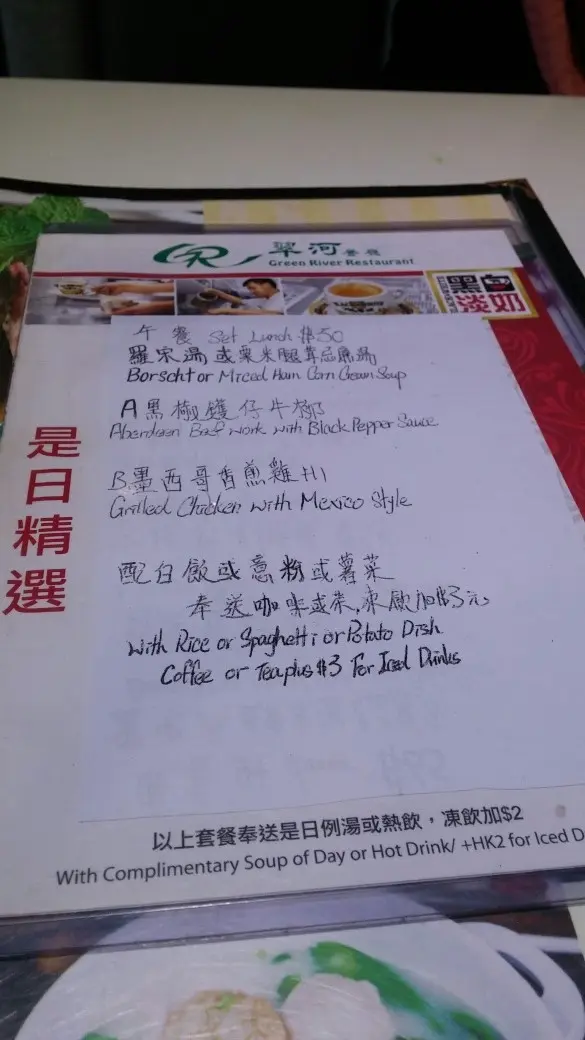 翠河餐廳
Green River Restaurant
黑白
淡奶
是日精選
午餐 Set Lunch $50
羅宋湯 或 粟米腿茸忌廉湯
Borscht or Miced Ham Corn Cream Soup
A 黑椒鑊仔牛柳
Aberdeen Beef work with Black Pepper Sauce
B 墨西哥香煎雞扒
Grilled Chicken with Mexico Style
配白飯或意粉或薯菜
奉送咖啡或茶,凍飲加$3元
with Rice or Spaghetti or Potato Dish
Coffee or Tea plus $3 For Iced Drinks
以上套餐奉送是日例湯或熱飲,凍飲加$2
With Complimentary Soup of Day or Hot Drink/ +HK2 for Iced D